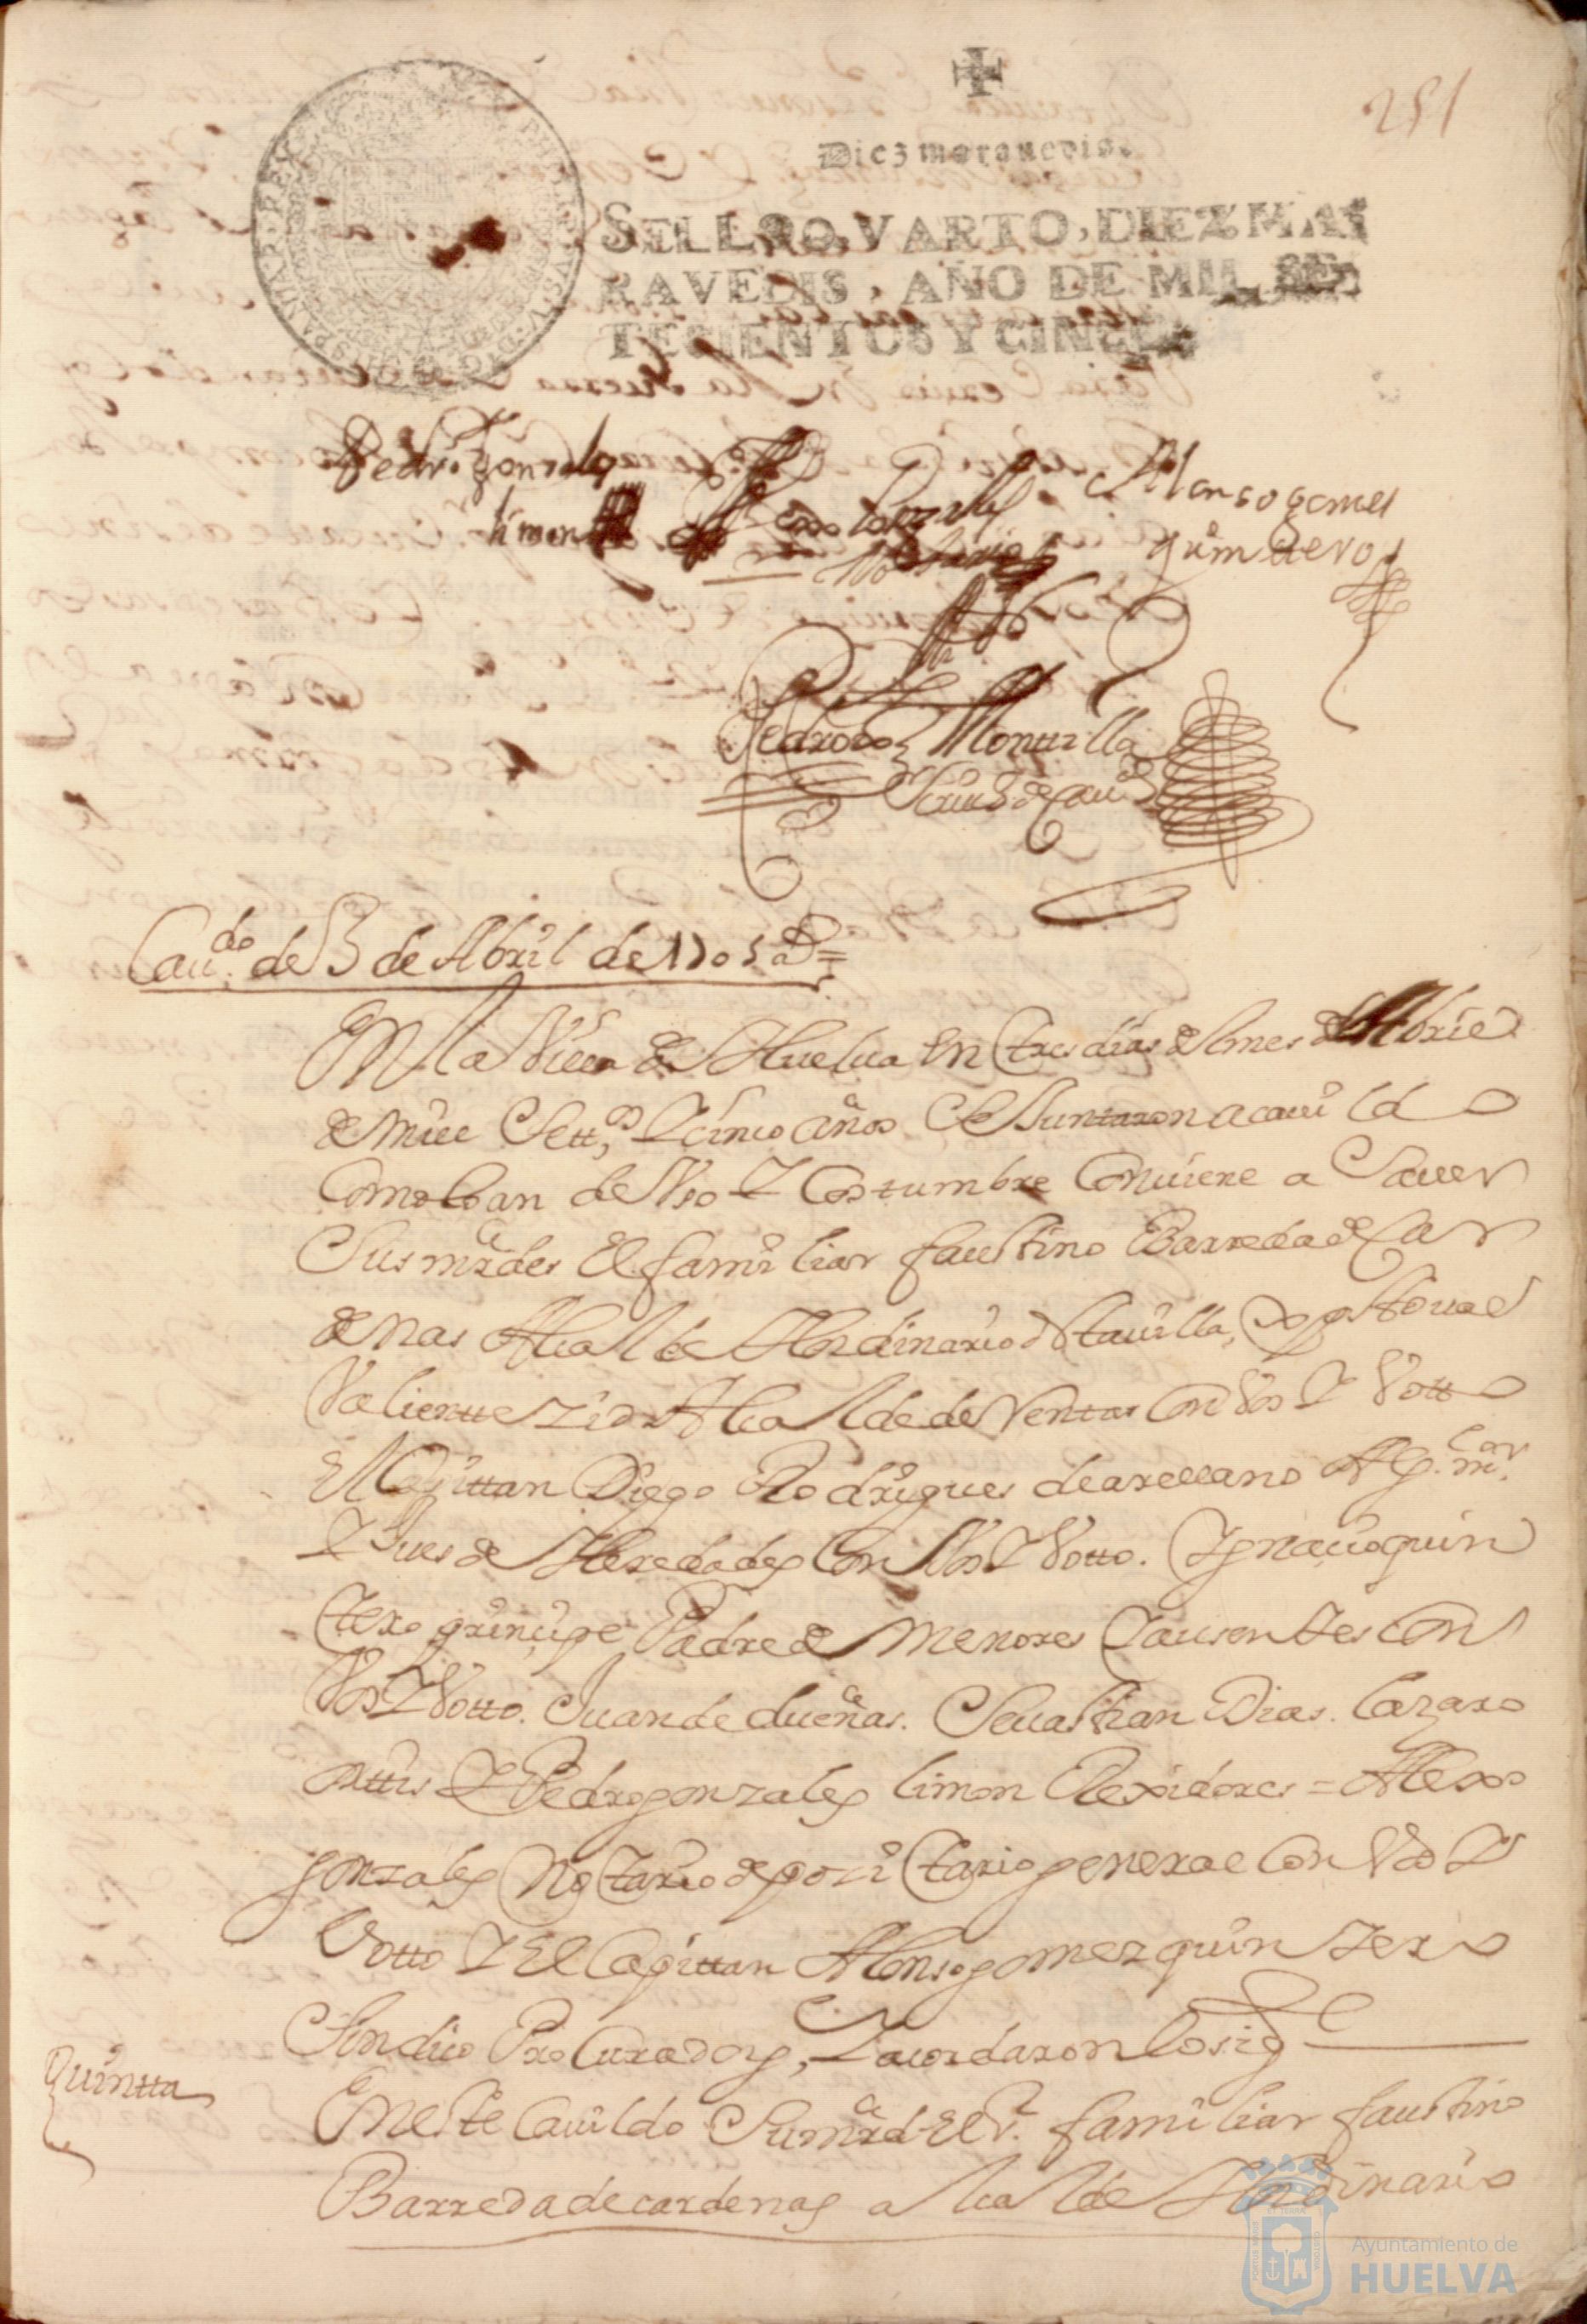 251
Diez maravedis.
SELLO QVARTO, DIEZ MA-
RAVEDIS, AÑO DE MIL SE-
TECIENTOS Y CINCO
Pedro Gonzales
limon
Alexo Gonzales
Notario
Alonso gomes
quintero
Pedro Montilla
Scriu.o de Cau.do
Cau.do de 3 de Abril de 1705 a.s =
En la Villa de Huelua en tres dias del mes de Abril
de mill Sett.os Y cinco años Se Juntaron a cauildo
Como lo an de Vso Y Costumbre Conuiene a Sauer
Sus mrdes El familiar faustino Barreda de Car
denas Alcalde Hordinario desta uilla,
Valiente Alcalde de Ventas Con Vos Y Votto
El Capittan Diego Rodrigues de arellano Alg. mor
Y Jues de Heredades Con Vos Y Votto. Ygnacio quin
tero principe Padre de Menores Y ausentes con
Vos Y Votto. Juan de dueñas. Seuastian Dias. Lazaro
orttis Y Pedro gonzales limon Rexidores = Alexo
gonzales Notario depocitario general Con Vos Y
Votto Y El Capittan Alonso gomez quintero
Sindico Procurador, Y acordaron lo sig.e
Quintta
En este Cauildo Su mrd El S.r familiar faustino
Barreda de cardenas alcalde Hordinario
Ayuntamiento de
HUELVA